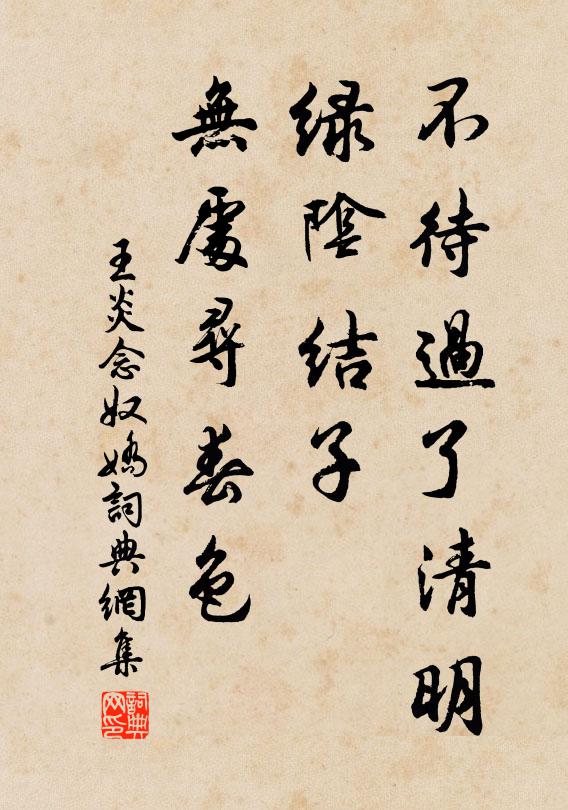 不待過了清明
緑陰結子
無處尋春色
王炎念奴嬌詞典網集
詞典网印